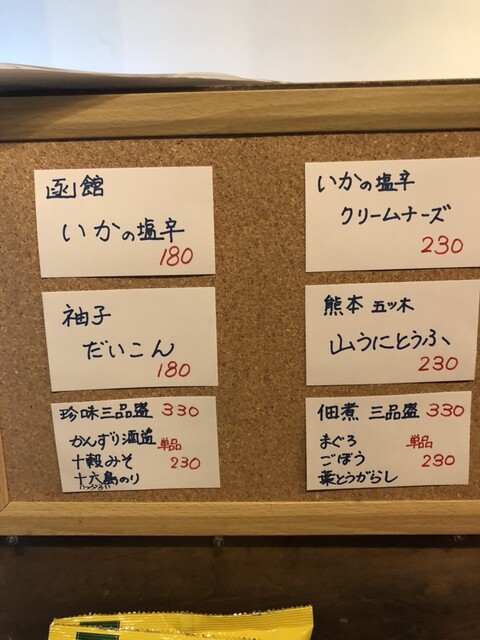 函館
いかの塩辛
180
いかの塩辛
クリームチーズ
230
袖子
だいこん
180
熊本 五ツ木
山うにとうふ
230
珍味三品盛 330
かんずり酒盗 単品
十穀みそ 230
十六島のり
うっぷるい
佃煮 三品盛 330
まぐろ 単品
ごぼう 230
葉とうがらし